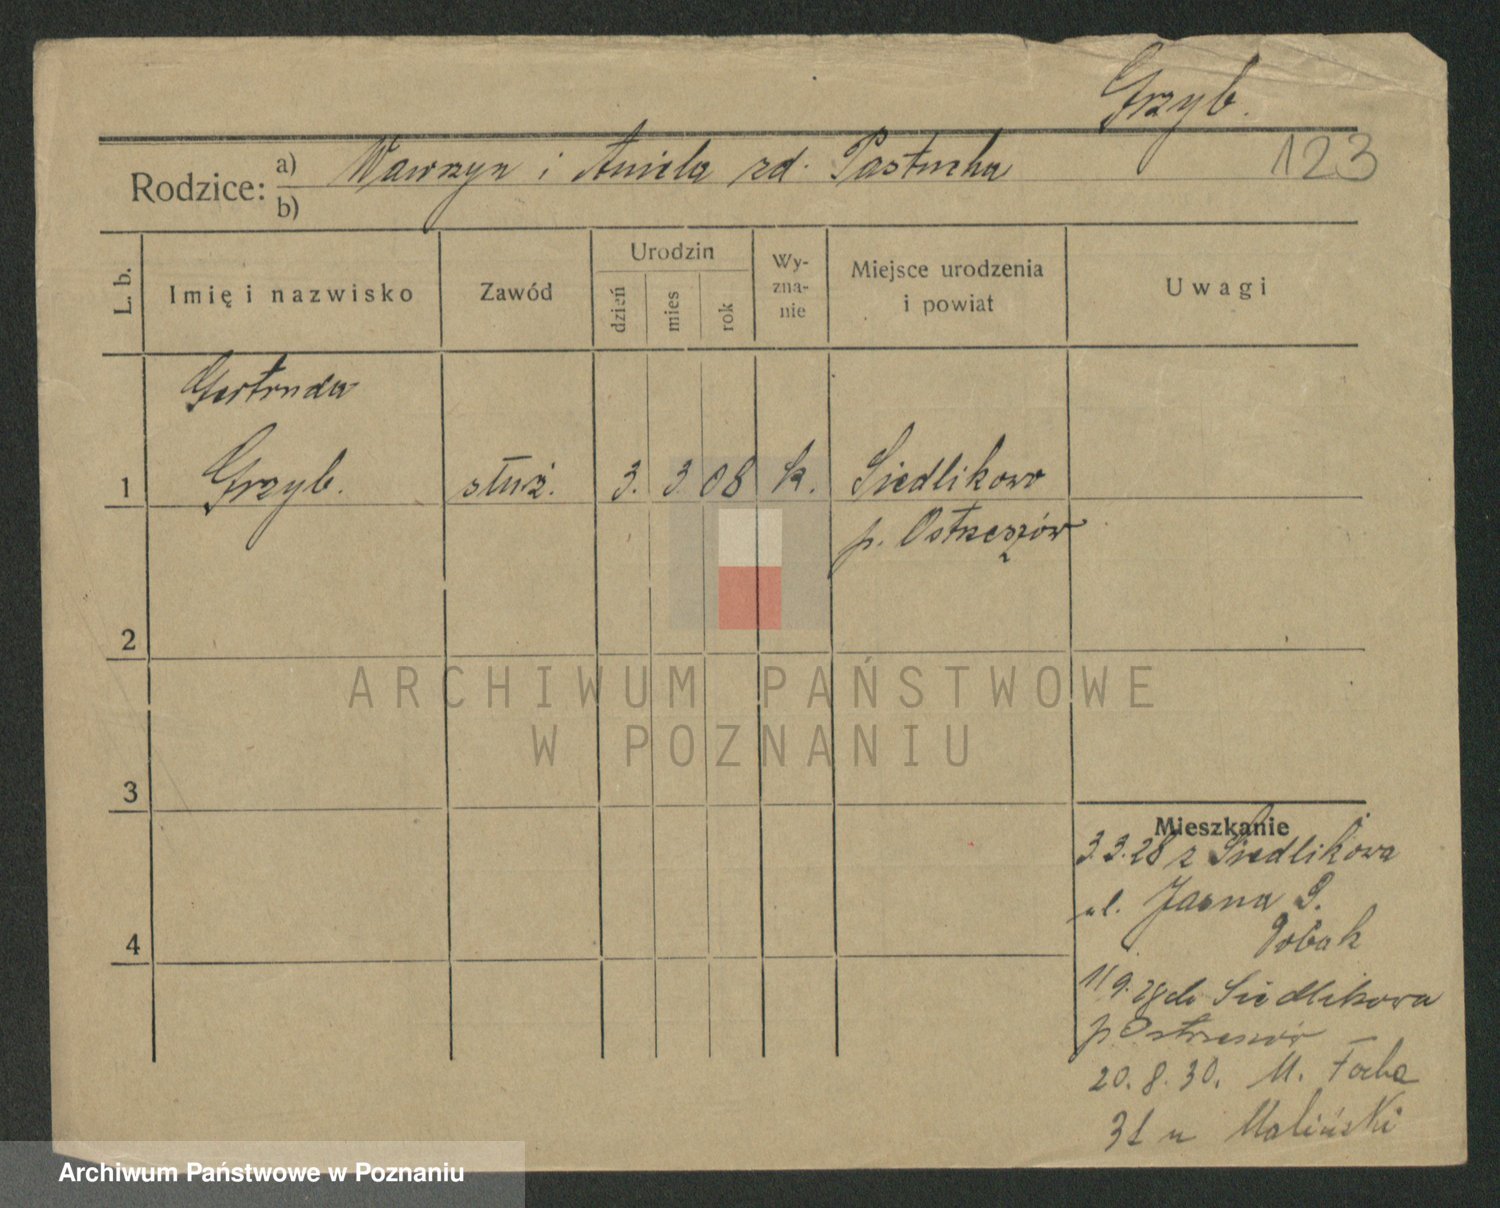 Grzyb.
123
Rodzice: a) Wawrzyn i Aniela zd. Pastucha
b)
L. b.
Imię i nazwisko
Zawód
Urodzin
dzień
mies
rok
Wy-
zna-
nie
Miejsce urodzenia
i powiat
Uwagi
Gertruda
1 Grzyb. służ. 3. 3. 08 k. Siedlikowo
p. Ostrzeszów
2
3
4
Mieszkanie
3.3.28 z Siedlikowa
ul. Jasna 9.
11.9.28 do Siedlikowa
p. Ostrzeszów
20. 8. 30. M. Focha
31 u Maliński
ARCHIWUM PAŃSTWOWE
W POZNANIU
Archiwum Państwowe w Poznaniu